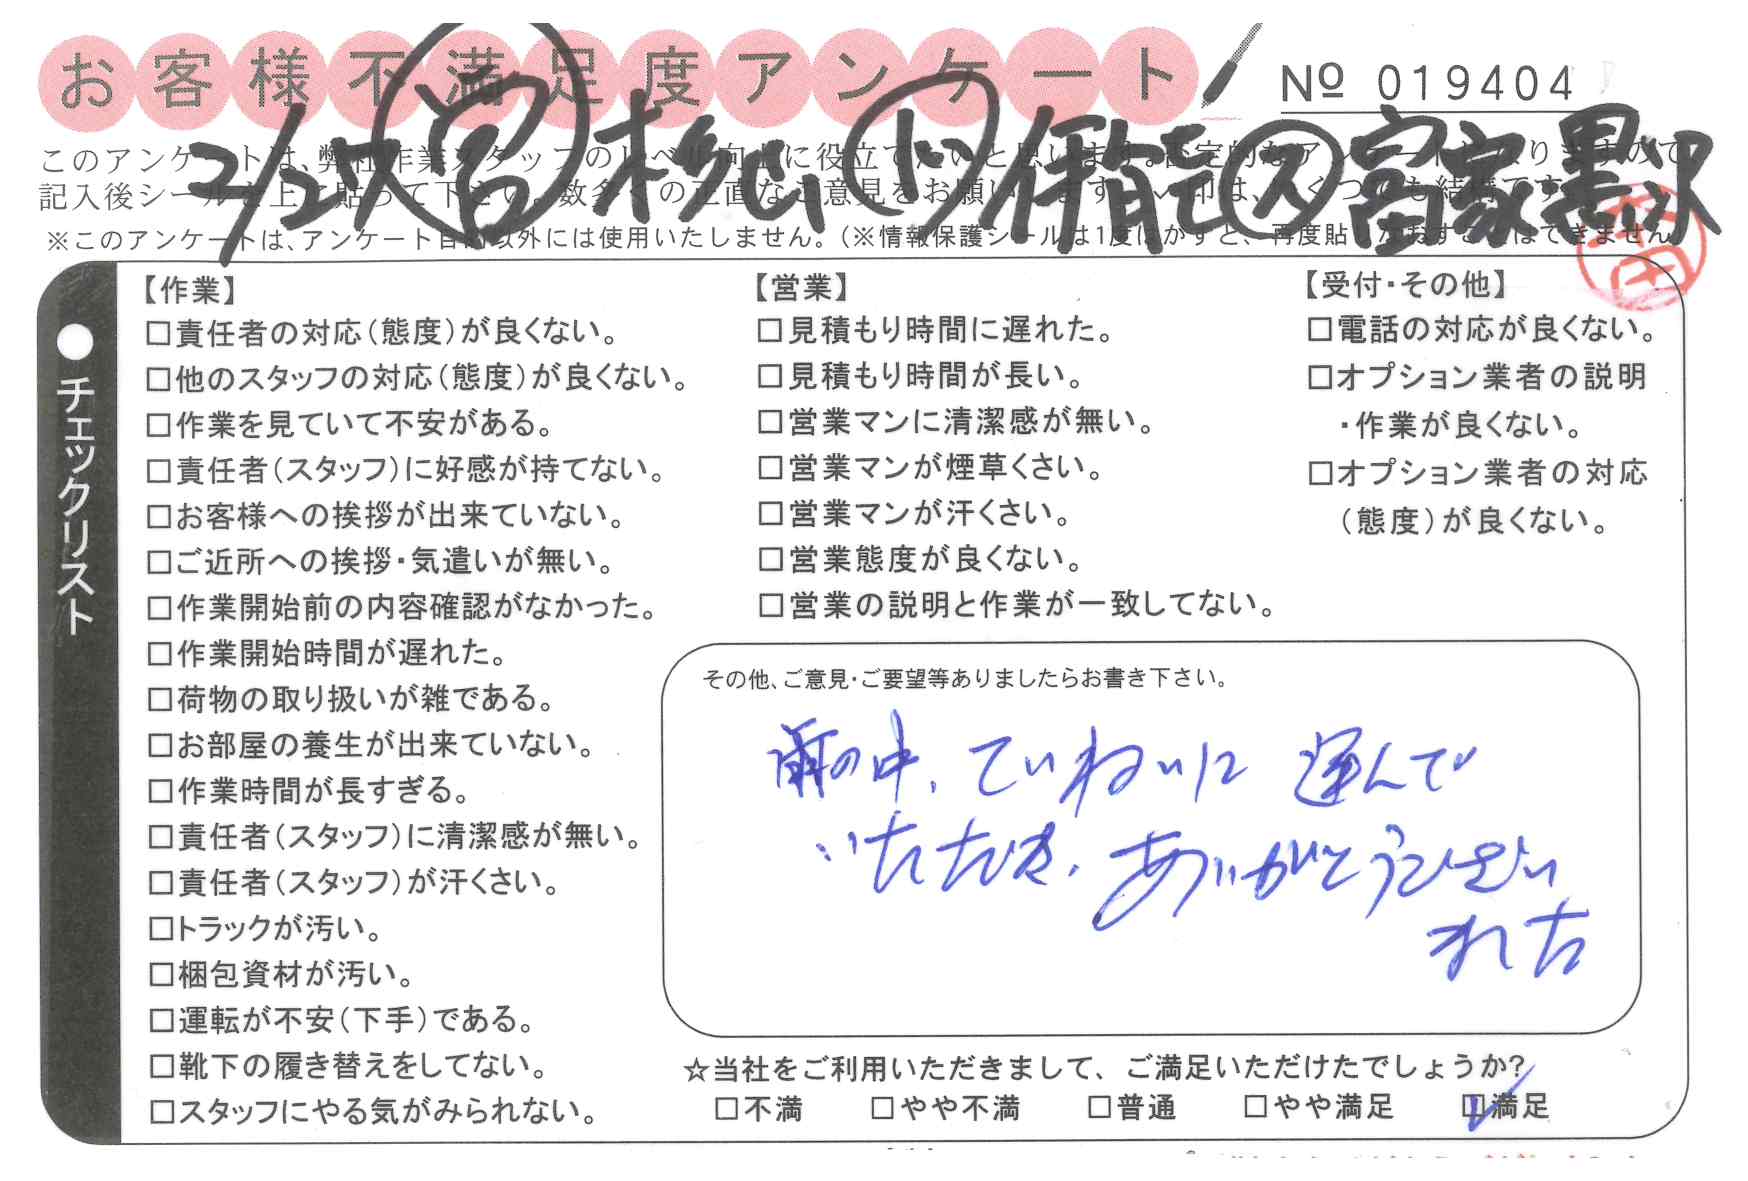 お客様不満足度アンケート
№ 019404
2/22 営 杉山 ト 伊能 ス 高家 黒沢
このアンケートは、弊社作業スタッフのレベル向上に役立てたいと思います。否定的なアンケートになりますので、
記入後シールを上に貼って下さい。数多くの正直なご意見をお願いします。レ印は、いくつでも結構です。
※このアンケートは、アンケート目的以外には使用いたしません。(※情報保護シールは1度はがすと、再度貼りなおすことはできません
●チェックリスト
【作業】
□責任者の対応(態度)が良くない。
□他のスタッフの対応(態度)が良くない。
□作業を見ていて不安がある。
□責任者(スタッフ)に好感が持てない。
□お客様への挨拶が出来ていない。
□ご近所への挨拶・気遣いが無い。
□作業開始前の内容確認がなかった。
□作業開始時間が遅れた。
□荷物の取り扱いが雑である。
□お部屋の養生が出来ていない。
□作業時間が長すぎる。
□責任者(スタッフ)に清潔感が無い。
□責任者(スタッフ)が汗くさい。
□トラックが汚い。
□梱包資材が汚い。
□運転が不安(下手)である。
□靴下の履き替えをしてない。
□スタッフにやる気がみられない。
【営業】
□見積もり時間に遅れた。
□見積もり時間が長い。
□営業マンに清潔感が無い。
□営業マンが煙草くさい。
□営業マンが汗くさい。
□営業態度が良くない。
□営業の説明と作業が一致してない。
【受付・その他】
□電話の対応が良くない。
□オプション業者の説明
・作業が良くない。
□オプション業者の対応
(態度)が良くない。
その他、ご意見・ご要望等ありましたらお書き下さい。
雨の中、ていねいに運んで
いただき、ありがとうございま
した
☆当社をご利用いただきまして、ご満足いただけたでしょうか?
□不満 □やや不満 □普通 □やや満足 ☑満足